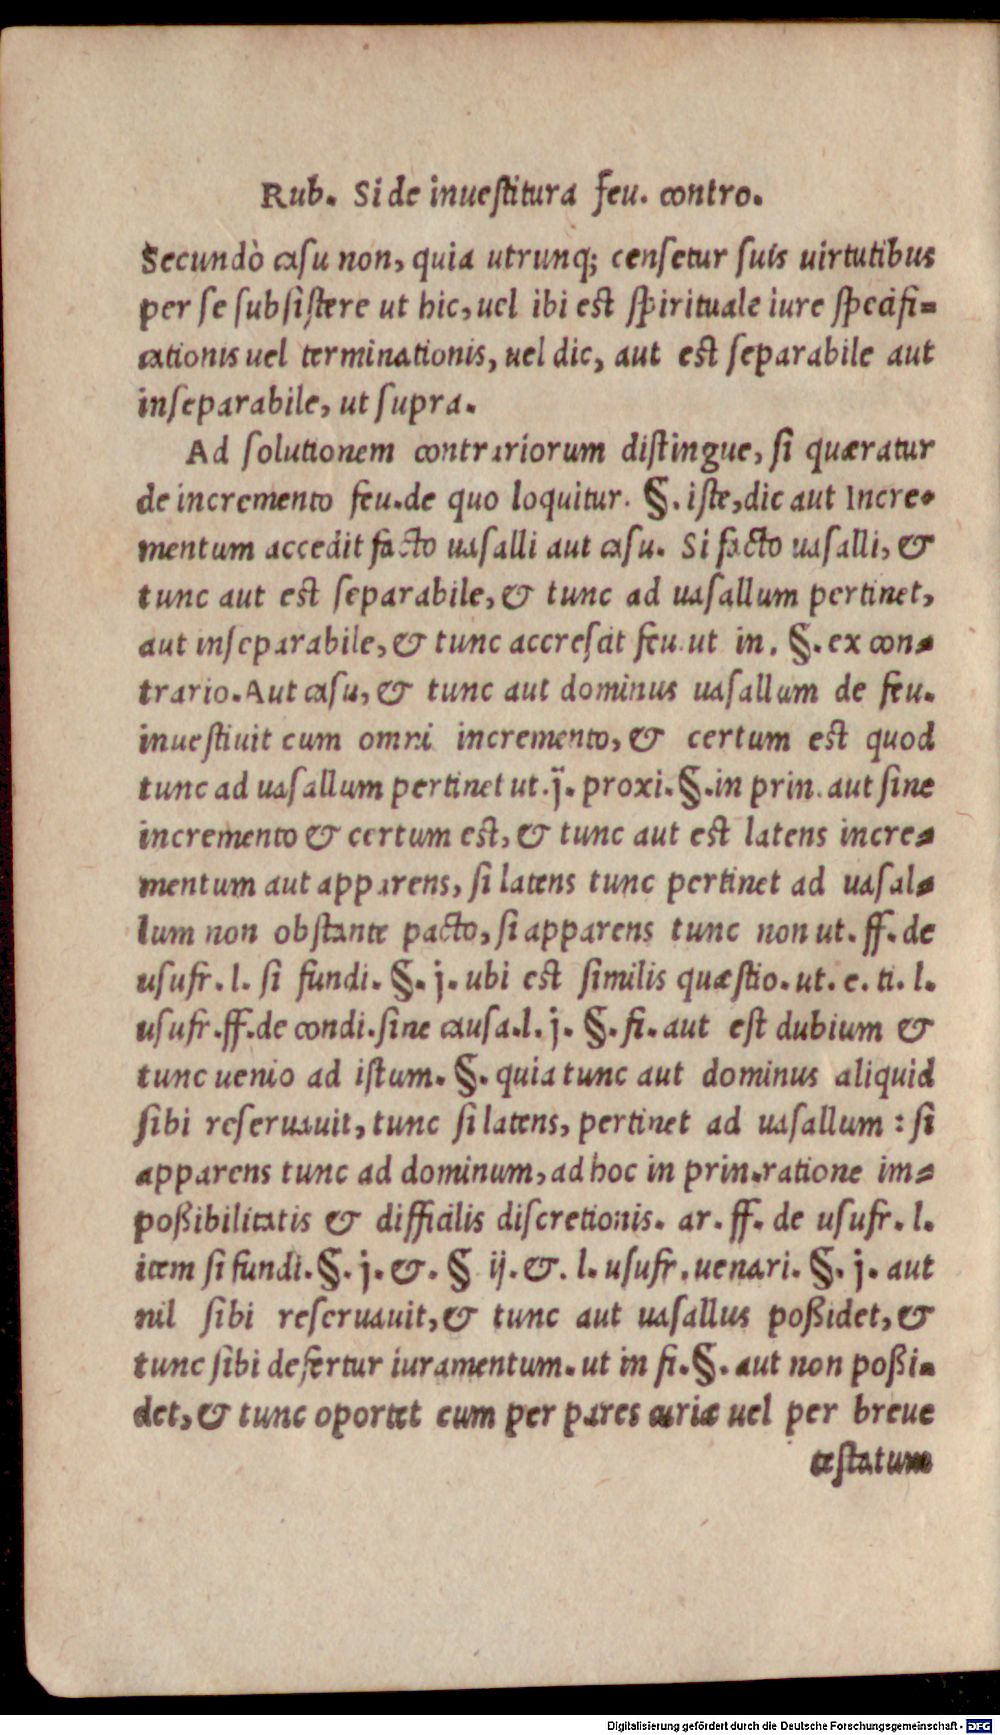 Rub. Si de inuestitura feu. contro.
Secundò casu non, quia utrunq; censetur suis uirtutibus
per se subsistere ut hic, uel ibi est spirituale iure specifi-
cationis uel terminationis, uel dic, aut est separabile aut
inseparabile, ut supra.
Ad solutionem contrariorum distingue, si quæratur
de incremento feu. de quo loquitur. §. iste, dic aut Incre-
mentum accedit facto uasalli aut casu. Si facto uasalli, &
tunc aut est separabile, & tunc ad uasallum pertinet,
aut inseparabile, & tunc accrescit feu. ut in. §. ex con-
trario. Aut casu, & tunc aut dominus uasallum de feu.
inuestiuit cum omni incremento, & certum est quod
tunc ad uasallum pertinet ut. j. proxi. §. in prin. aut sine
incremento & certum est, & tunc aut est latens incre-
mentum aut apparens, si latens tunc pertinet ad uasal-
lum non obstante pacto, si apparens tunc non ut. ff. de
usufr. l. si fundi. §. j. ubi est similis quæstio. ut. e. ti. l.
usufr. ff. de condi. sine causa. l. j. §. fi. aut est dubium &
tunc uenio ad istum. §. quia tunc aut dominus aliquid
sibi reseruauit, tunc si latens, pertinet ad uasallum : si
apparens tunc ad dominum, ad hoc in prin. ratione im-
poßibilitatis & difficilis discretionis. ar. ff. de usufr. l.
item si fundi. §. j. &. § ij. &. l. usufr. uenari. §. j. aut
nil sibi reseruauit, & tunc aut uasallus poßidet, &
tunc sibi defertur iuramentum. ut in fi. §. aut non poßi-
det, & tunc oportet eum per pares curiæ uel per breue
testatum
Digitalisierung gefördert durch die Deutsche Forschungsgemeinschaft - DFG